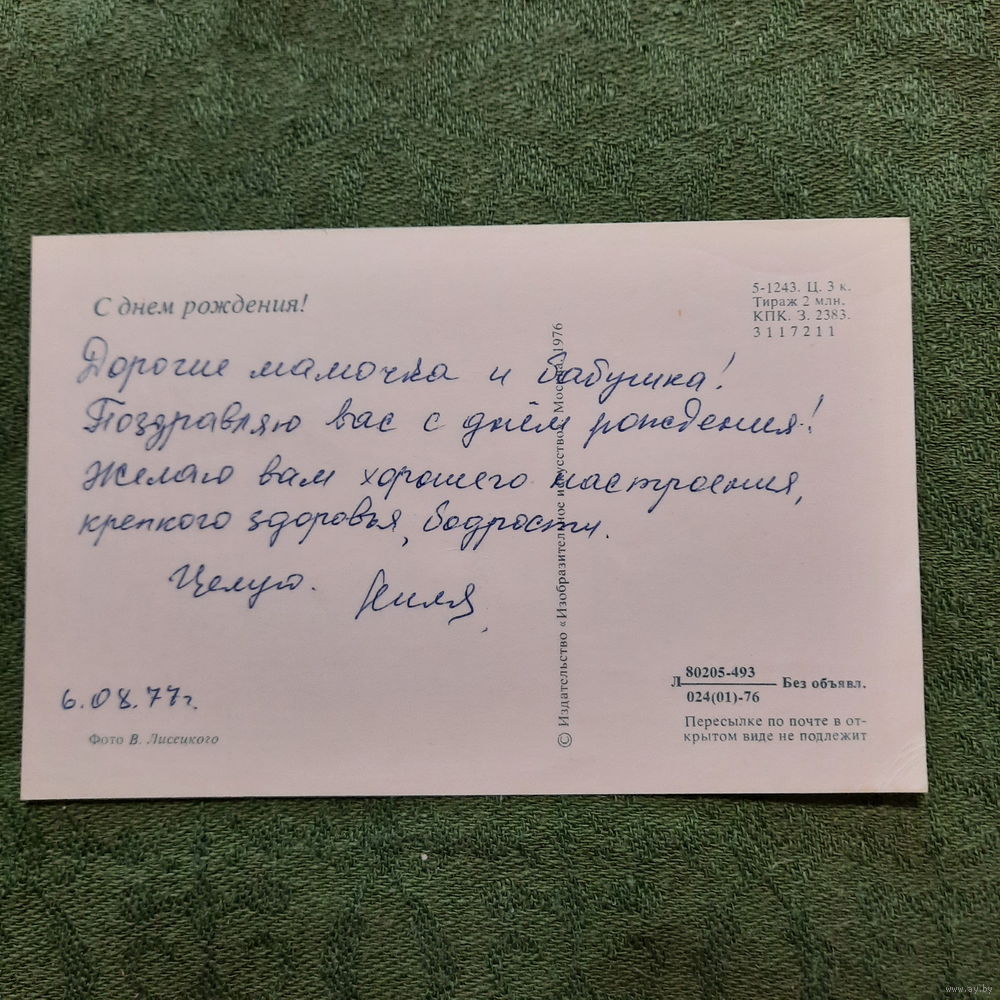 С днем рождения!
5-1243. Ц. 3 к.
Тираж 2 млн.
КПК. З. 2383.
3117211
Дорогие мамочка и бабушка!
Поздравляю вас с днём рождения!
Желаю вам хорошего настроения,
крепкого здоровья, бодрости.
Целую.
6.08.77г.
Фото В. Лисецкого
© Издательство «Изобразительное искусство». Москва. 1976
Л 80205-493 Без объявл.
024(01)-76
Пересылке по почте в от-
крытом виде не подлежит
www.ay.by